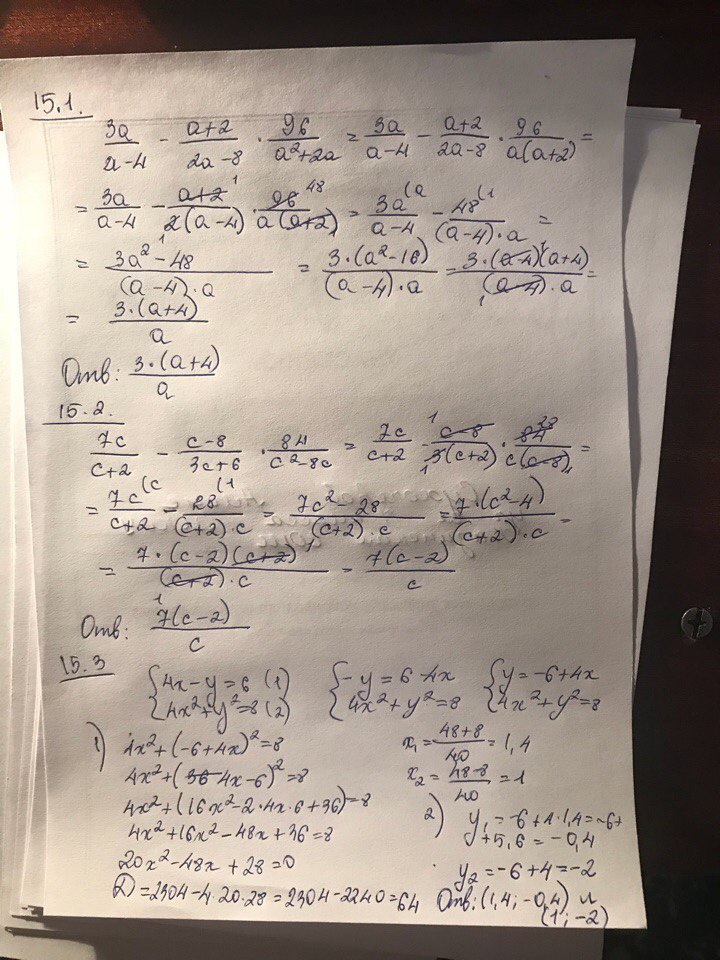 15.1.
3a/(a-4) - (a+2)/(2a-8) · 96/(a²+2a) = 3a/(a-4) - (a+2)/(2a-8) · 96/(a(a+2)) =
= 3a/(a-4) - (a+2)/(2(a-4)) · 96/(a(a+2)) = 3a/(a-4) - 48/((a-4)·a) =
= (3a²-48)/((a-4)·a) = 3·(a²-16)/((a-4)·a) = 3·(a-4)(a+4)/((a-4)·a) =
= 3·(a+4)/a
Отв: 3·(a+4)/a
15.2.
7c/(c+2) - (c-8)/(3c+6) · 84/(c²-8c) = 7c/(c+2) (c-8)/(3(c+2)) · 84/(c(c-8)) =
= 7c/(c+2) - 28/((c+2)·c) = (7c²-28)/((c+2)·c) = 7·(c²-4)/((c+2)·c) =
= 7·(c-2)(c+2)/((c+2)·c) = 7(c-2)/c
Отв: 7(c-2)/c
15.3
{4x-y=6 (1) {-y=6-4x {y=-6+4x
{4x²+y²=8 (2) {4x²+y²=8 {4x²+y²=8
1) 4x²+(-6+4x)²=8
4x²+(4x-6)²=8
4x²+(16x²-2·4x·6+36)=8
4x²+16x²-48x+36=8
20x²-48x+28=0
D=2304-4·20·28=2304-2240=64
x₁=(48+8)/40=1,4
x₂=(48-8)/40=1
2) y₁=-6+4·1,4=-6+
+5,6=-0,4
y₂=-6+4=-2
Отв: (1,4; -0,4) и
(1; -2)